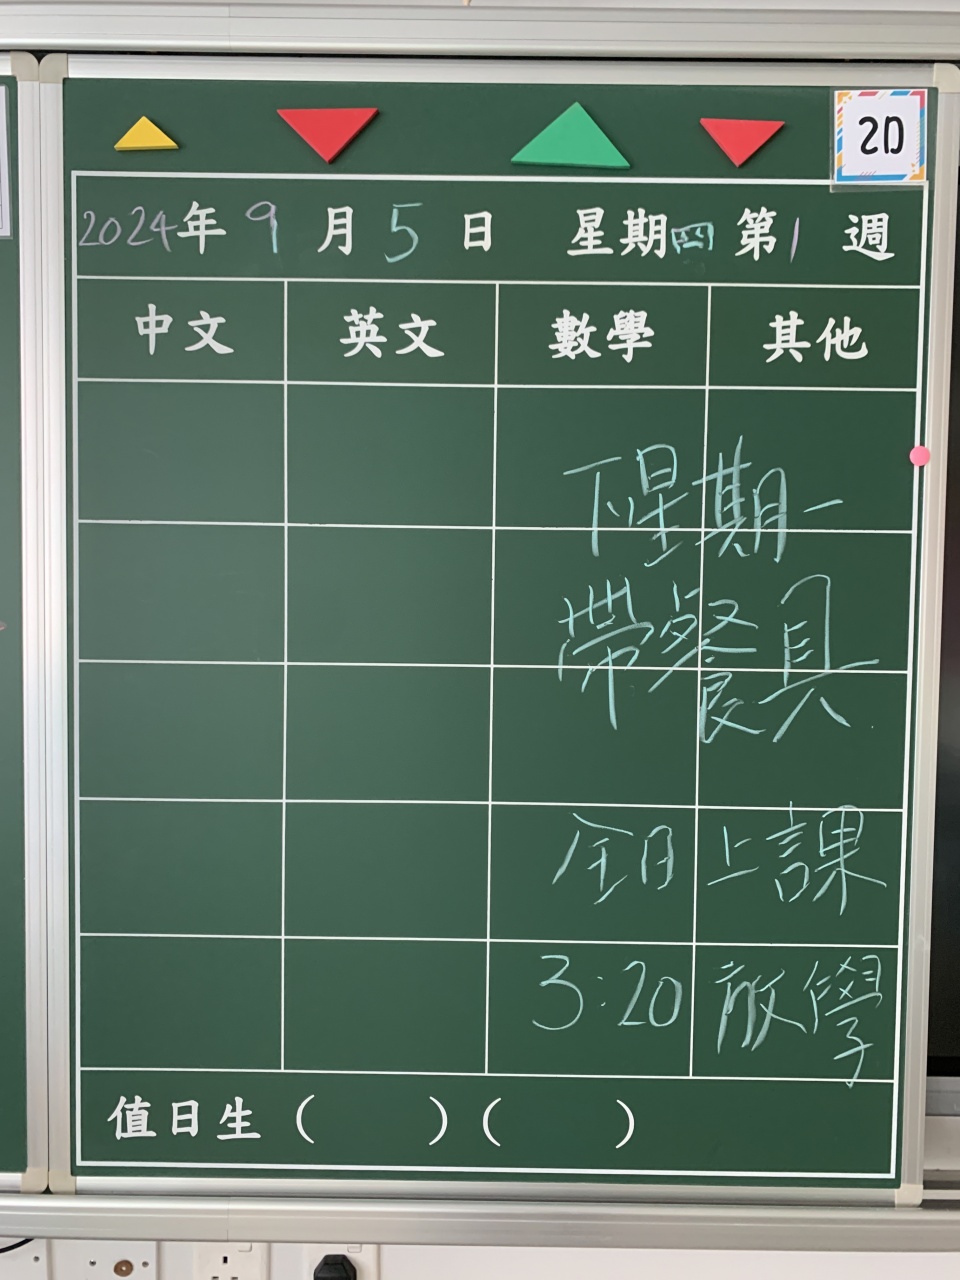 2D
2024年9月5日 星期四 第1週
中文 英文 數學 其他
下星期一
帶餐具
全日上課
3:20 散學
值日生 ( ) ( )